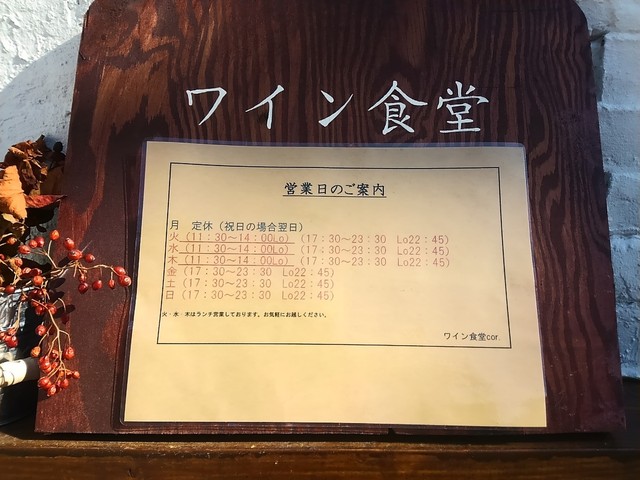 ワイン食堂
営業日のご案内
月　定休（祝日の場合翌日）
火（11：30～14：00Lo）（17：30～23：30　Lo22：45）
水（11：30～14：00Lo）（17：30～23：30　Lo22：45）
木（11：30～14：00Lo）（17：30～23：30　Lo22：45）
金（17：30～23：30　Lo22：45）
土（17：30～23：30　Lo22：45）
日（17：30～23：30　Lo22：45）
火・水・木はランチ営業しております。お気軽にお越しください。
ワイン食堂cor.